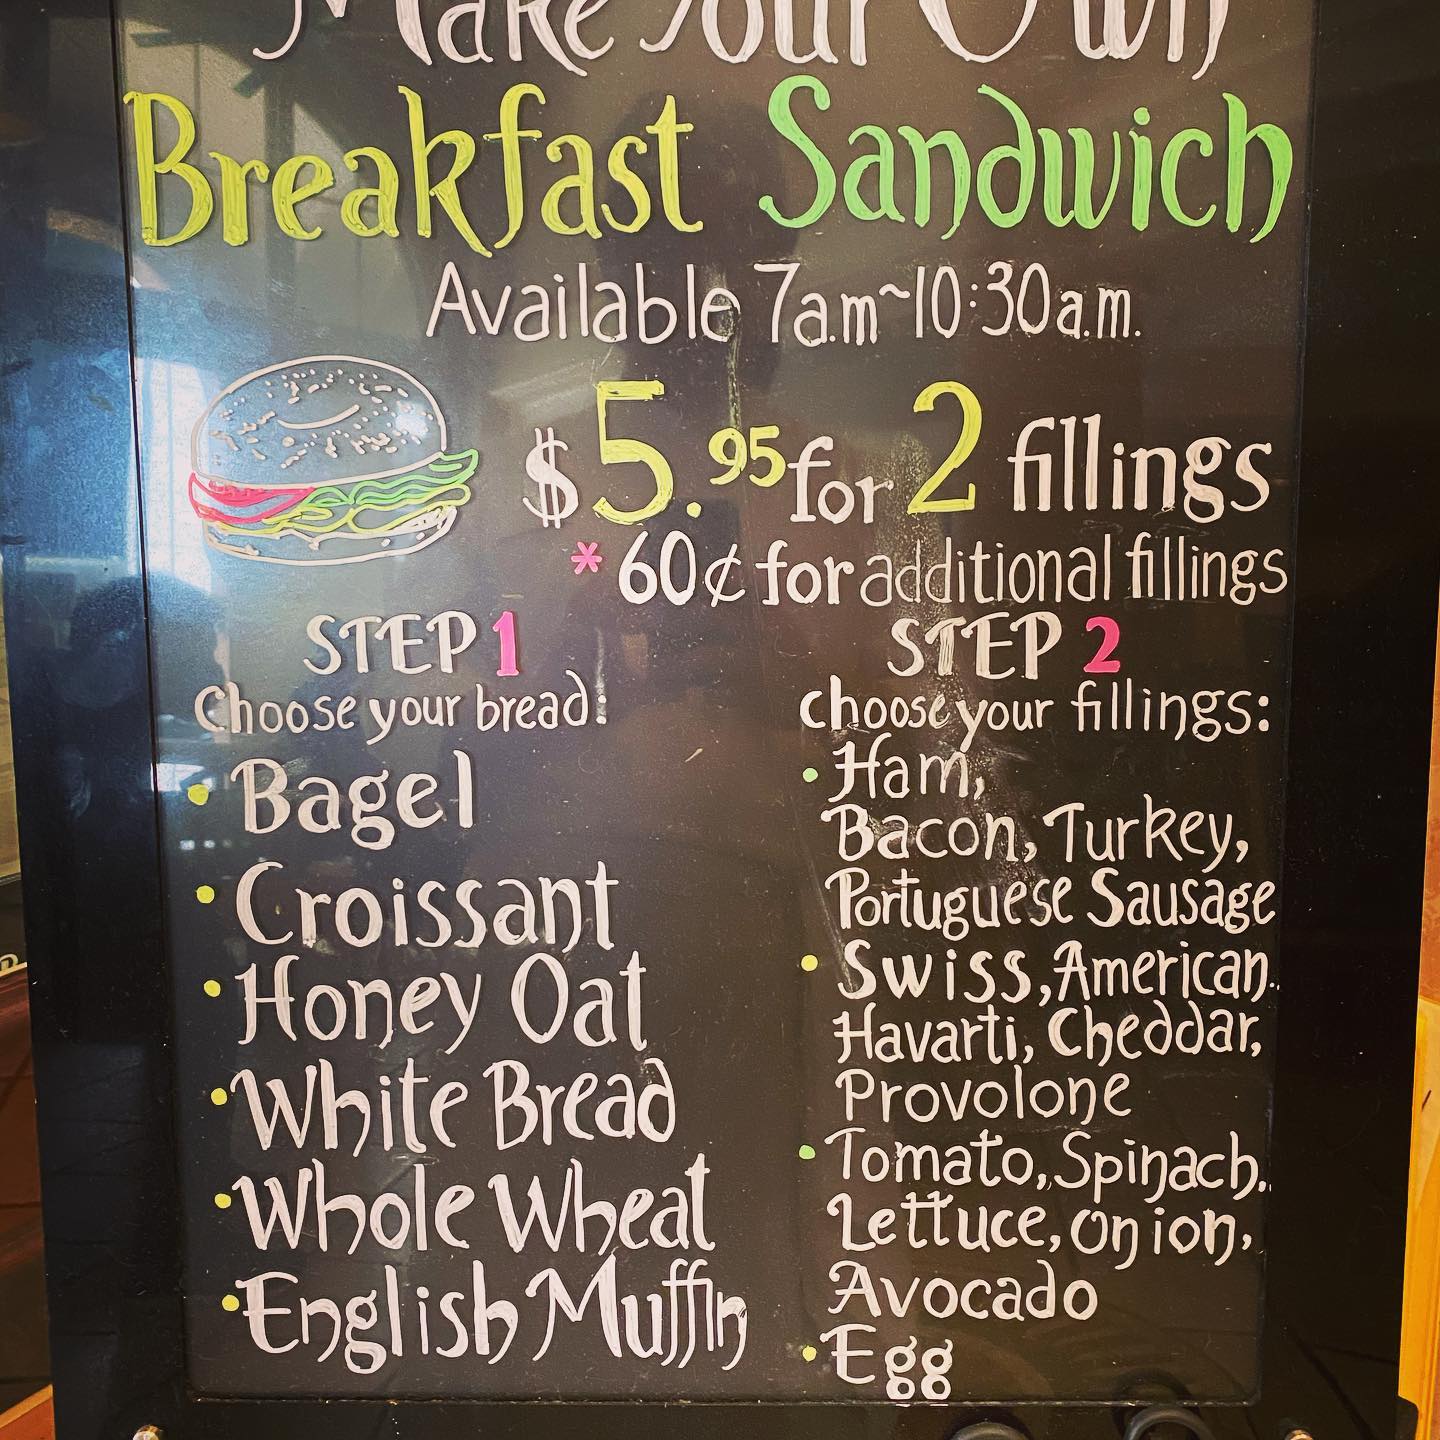 Make Your Own
Breakfast Sandwich
Available 7a.m~10:30a.m.
$5.95 for 2 fillings
*60¢ for additional fillings
STEP 1
Choose your bread:
• Bagel
• Croissant
• Honey Oat
• White Bread
• Whole Wheat
• English Muffin
STEP 2
Choose your fillings:
• Ham,
Bacon, Turkey,
Portuguese Sausage
• Swiss, American.
Havarti, Cheddar,
Provolone
• Tomato, Spinach.
Lettuce, Onion,
Avocado
• Egg